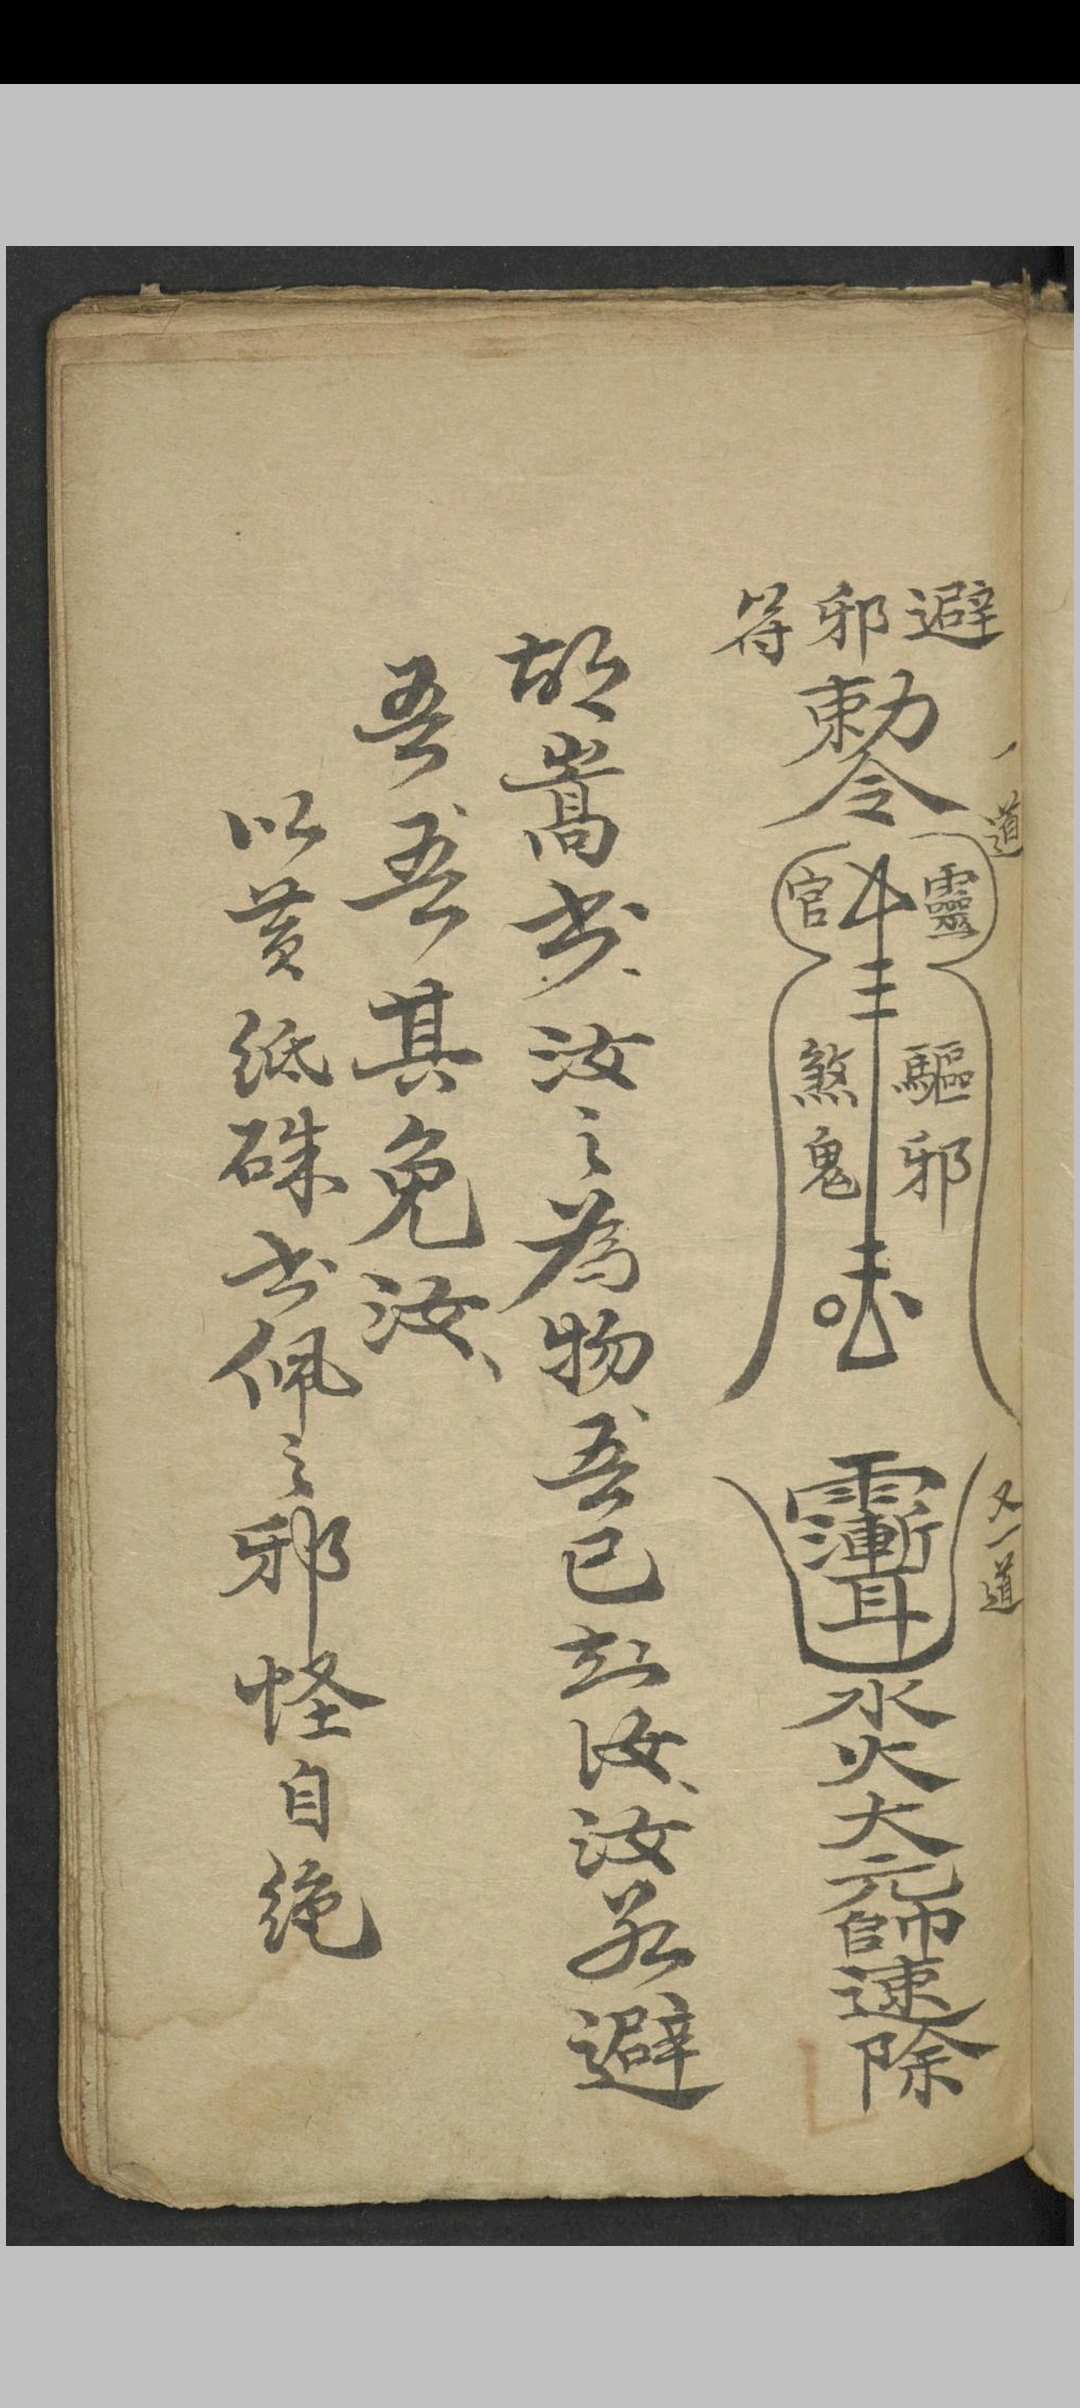 避邪符
一道
勅令
靈官
驅邪
煞鬼
又一道
水火大元帥速除
胡嵩者汝之為物吾已知汝汝若避
吾吾其免汝
以黃紙硃書佩之邪怪自絕